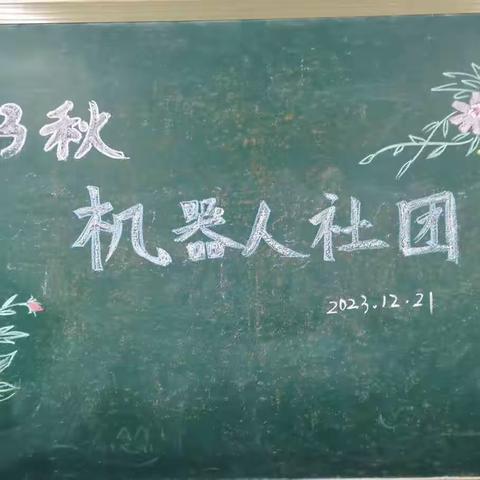 23秋
机器人社团
2023.12.21